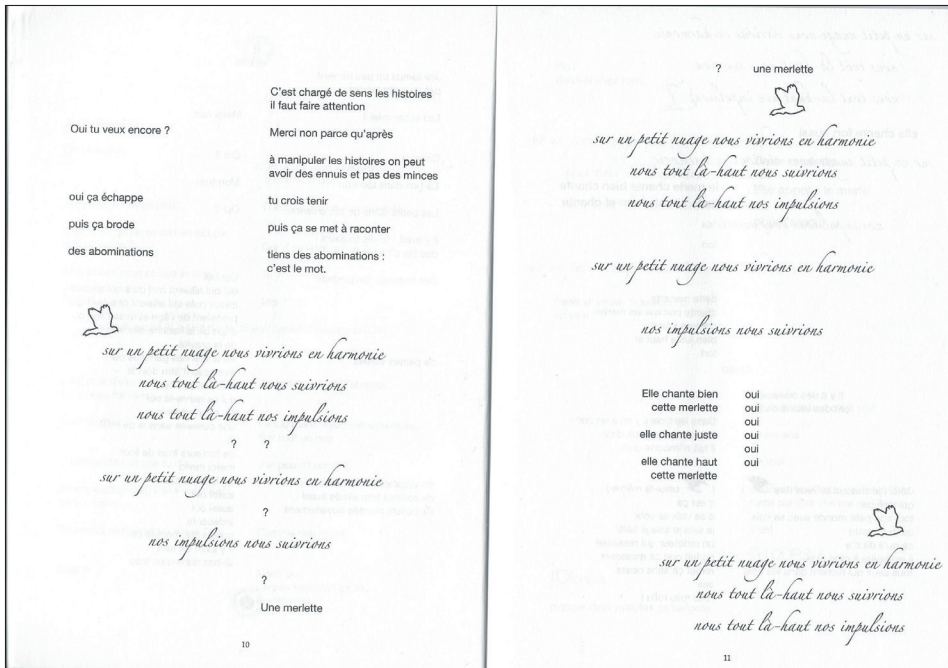 C'est chargé de sens les histoires
il faut faire attention
Oui tu veux encore ? Merci non parce qu'après
à manipuler les histoires on peut
avoir des ennuis et pas des minces
oui ça échappe tu crois tenir
puis ça brode puis ça se met à raconter
des abominations tiens des abominations :
c'est le mot.
sur un petit nuage nous vivrions en harmonie
nous tout là-haut nous suivrions
nous tout là-haut nos impulsions
? ?
sur un petit nuage nous vivrions en harmonie
?
nos impulsions nous suivrions
?
Une merlette
10
? une merlette
sur un petit nuage nous vivrions en harmonie
nous tout là-haut nous suivrions
nous tout là-haut nos impulsions
sur un petit nuage nous vivrions en harmonie
nos impulsions nous suivrions
Elle chante bien oui
cette merlette oui
oui
elle chante juste oui
oui
elle chante haut oui
cette merlette
sur un petit nuage nous vivrions en harmonie
nous tout là-haut nous suivrions
nous tout là-haut nos impulsions
11